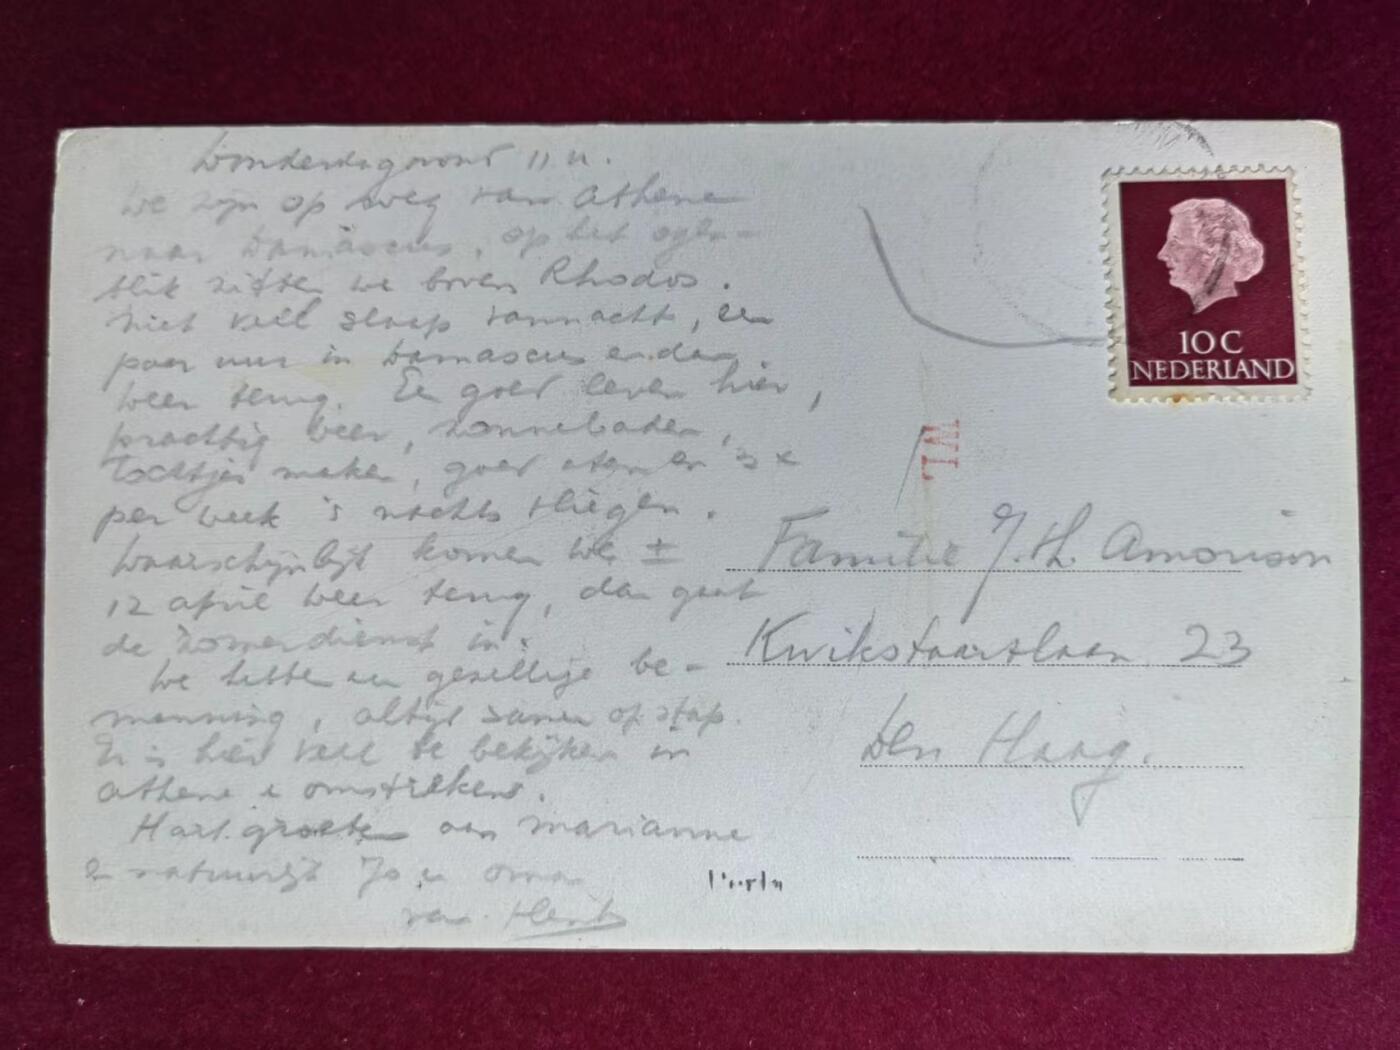 Donderdagavond 11 u.
We zijn op weg van Athene
naar Damascus, op het ogen-
blik zitten we boven Rhodos.
Niet veel slaap vannacht, een
paar uur in Damascus en dan
weer terug. Een goed leven hier,
prachtig weer, zonnebaden,
tochtjes maken, goed eten en 3x
per week 's nachts vliegen.
Waarschijnlijk komen we ±
12 april weer terug, dan gaat
de zomerdienst in.
We hebben een gezellige be-
manning, altijd samen op stap.
Er is hier veel te bekijken in
Athene & omstreken.
Hart. groeten aan Marianne
& natuurlijk Jo u oma
van Henk
10 C
NEDERLAND
TM
Familie J. H. Amorison
Kwikstaartlaan 23
Den Haag.